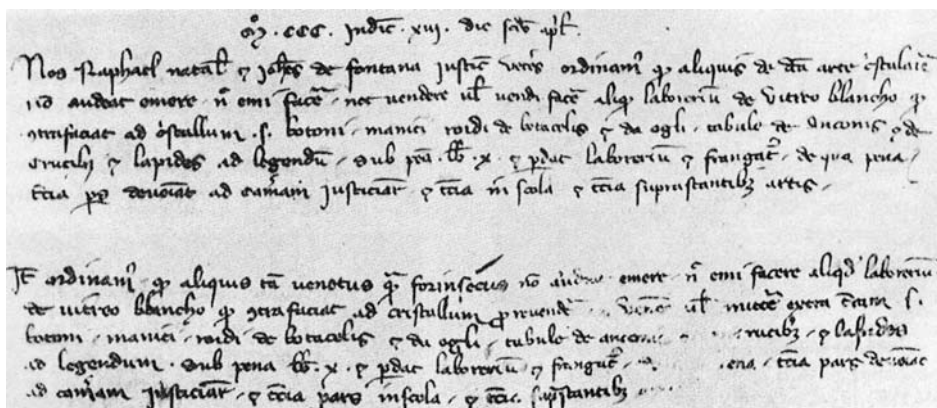 M° · CCC · Indic̄ · xiii · die scd̄o apl̄
Nos Raphael natal̄ ⁊ Ioh̄es de fontana Iustic̄ vet̄es ordinam̄ qđ aliquis de dc̄a arte c̓stulaīr
nō audeat emere · n̄ emi facē · nec vendere ul̄ vendi facē aliqđ laborerīu de vitreo blancho qđ
ꝯtrafaciat ad c̓stallum · s̄ · botoni · manici roidi de botacelis ⁊ da ogli · tabule de anconis ⁊ de
crucibȝ ⁊ lapides ad legendū · sub pena lb̄ · x · ⁊ ꝑdat laborerīu ⁊ frangat̄ · de qua pena ·
t̄cia ꝑs devēiat ad cam̄am Iusticiar̄ ⁊ t̄cia in scola ⁊ t̄cia suprastantibȝ artis ·
It̄ ordinam̄ qđ aliquis tā venetus qā forinsecus nō emere · n̄ emi facere aliqđ laborerīu
de vitreo blancho qđ ꝯtrafaciat ad cristallum ꝓ revendē ul̄ mitt̄e extra t̄ram s̄ ·
botoni · manici · roidi de botacelis ⁊ da ogli · tabule de ⁊ lapides
ad legendum · sub pena lb̄ · x · ⁊ ꝑdat laborerīu ⁊ frangat̄ · t̄cia pars devēiat
ad cam̄am Iusticiar̄ · ⁊ t̄cia pars in scola · ⁊ t̄cia sup̄stantibȝ